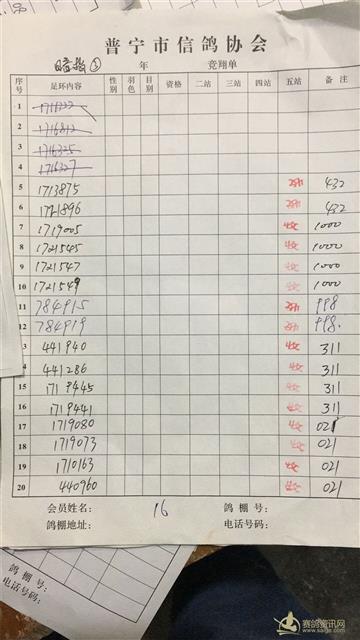 普宁市信鸽协会
暗插③ 年 竞翔单
序号 足环内容 性别 羽色 目别 资格 二站 三站 四站 五站 备注
1
2 1716812
3 1716325
4 1716327
5 1713875 432
6 1721896 432
7 1719005 1000
8 1721545 1000
9 1721547 1000
10 1721549 1000
11 784915 998
12 784919 998.
3 441940 311
4 441286 311
15 1719445 311
16 1719441 311
17 1719080 021
18 1719073 021
19 1710163 021
20 440960 021
会员姓名: 16 鸽棚号:
鸽棚地址: 电话号码:
鸽棚号:
电话号码:
赛鸽资讯网
www.saige.com